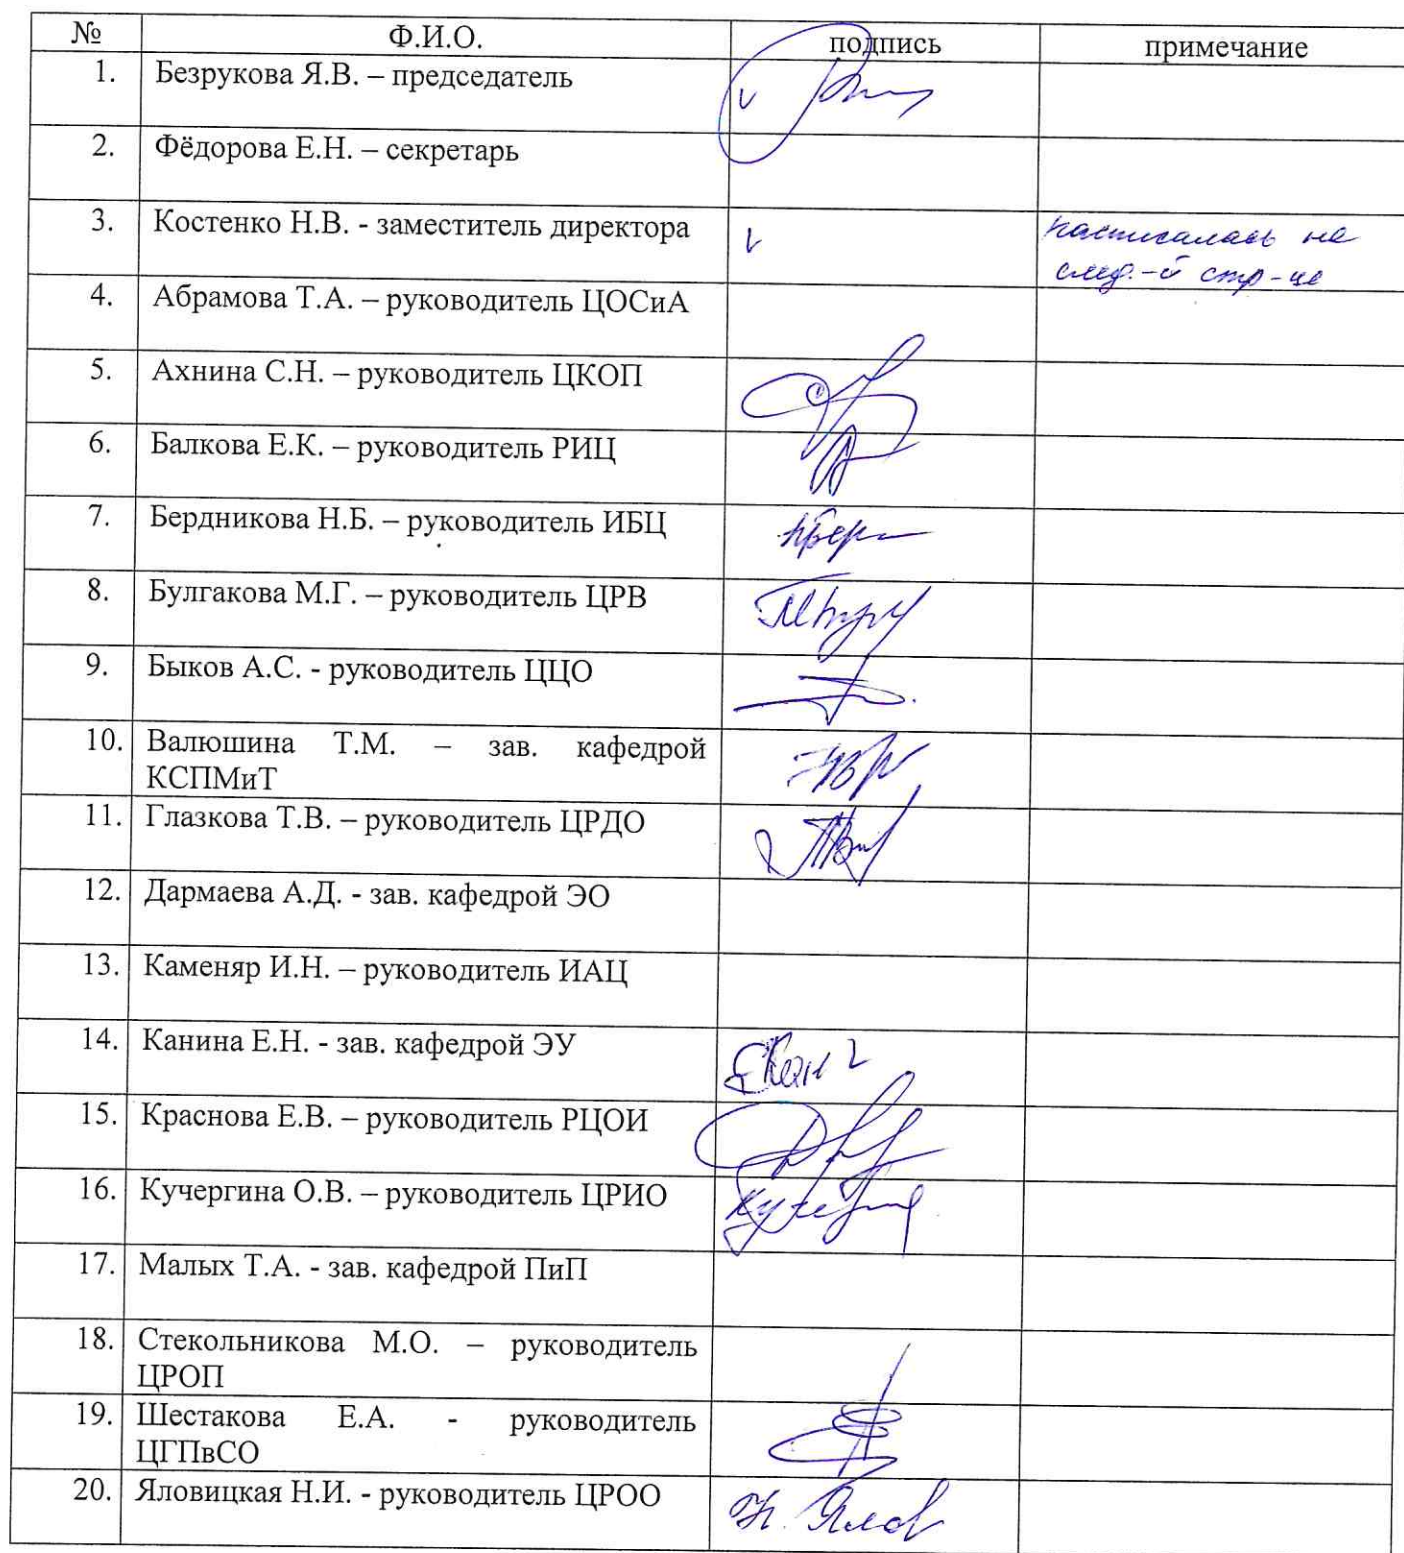 № Ф.И.О. подпись примечание
1. Безрукова Я.В. – председатель
2. Фёдорова Е.Н. – секретарь
3. Костенко Н.В. - заместитель директора расписалась на
след.-й стр-це
4. Абрамова Т.А. – руководитель ЦОСиА
5. Ахнина С.Н. – руководитель ЦКОП
6. Балкова Е.К. – руководитель РИЦ
7. Бердникова Н.Б. – руководитель ИБЦ
8. Булгакова М.Г. – руководитель ЦРВ
9. Быков А.С. - руководитель ЦЦО
10. Валюшина Т.М. – зав. кафедрой
КСПМиТ
11. Глазкова Т.В. – руководитель ЦРДО
12. Дармаева А.Д. - зав. кафедрой ЭО
13. Каменяр И.Н. – руководитель ИАЦ
14. Канина Е.Н. - зав. кафедрой ЭУ
15. Краснова Е.В. – руководитель РЦОИ
16. Кучергина О.В. – руководитель ЦРИО
17. Малых Т.А. - зав. кафедрой ПиП
18. Стекольникова М.О. – руководитель
ЦРОП
19. Шестакова Е.А. - руководитель
ЦГПвСО
20. Яловицкая Н.И. - руководитель ЦРОО Н. Ялов